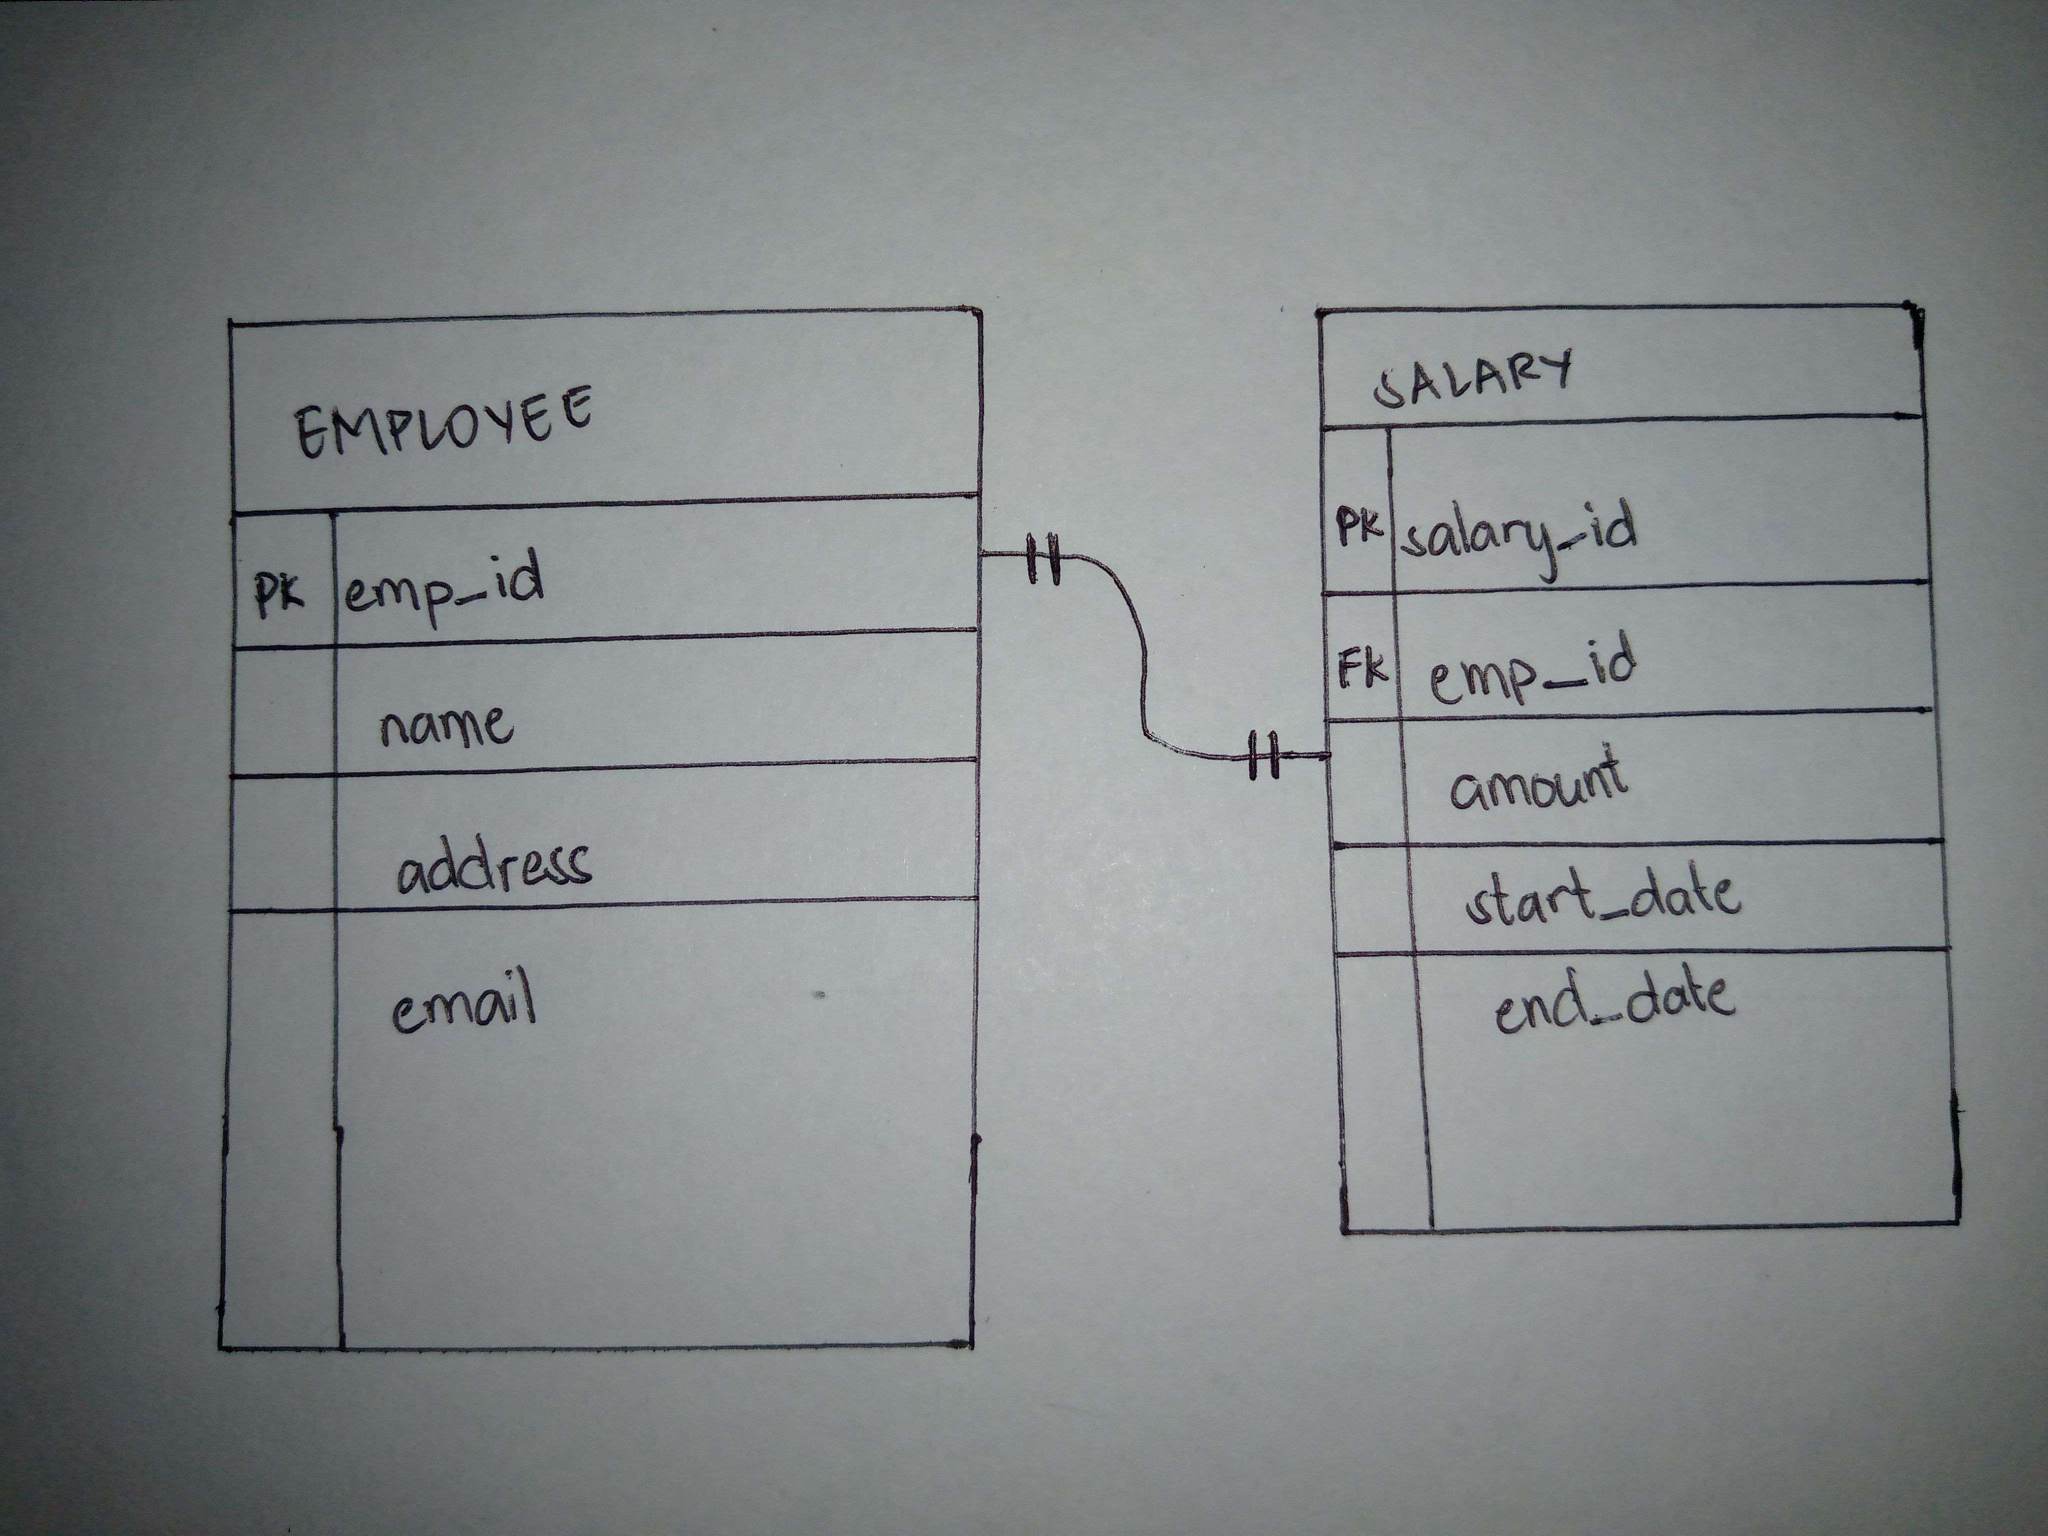 EMPLOYEE
PK emp_id
name
address
email
SALARY
PK salary_id
FK emp_id
amount
start_date
end_date